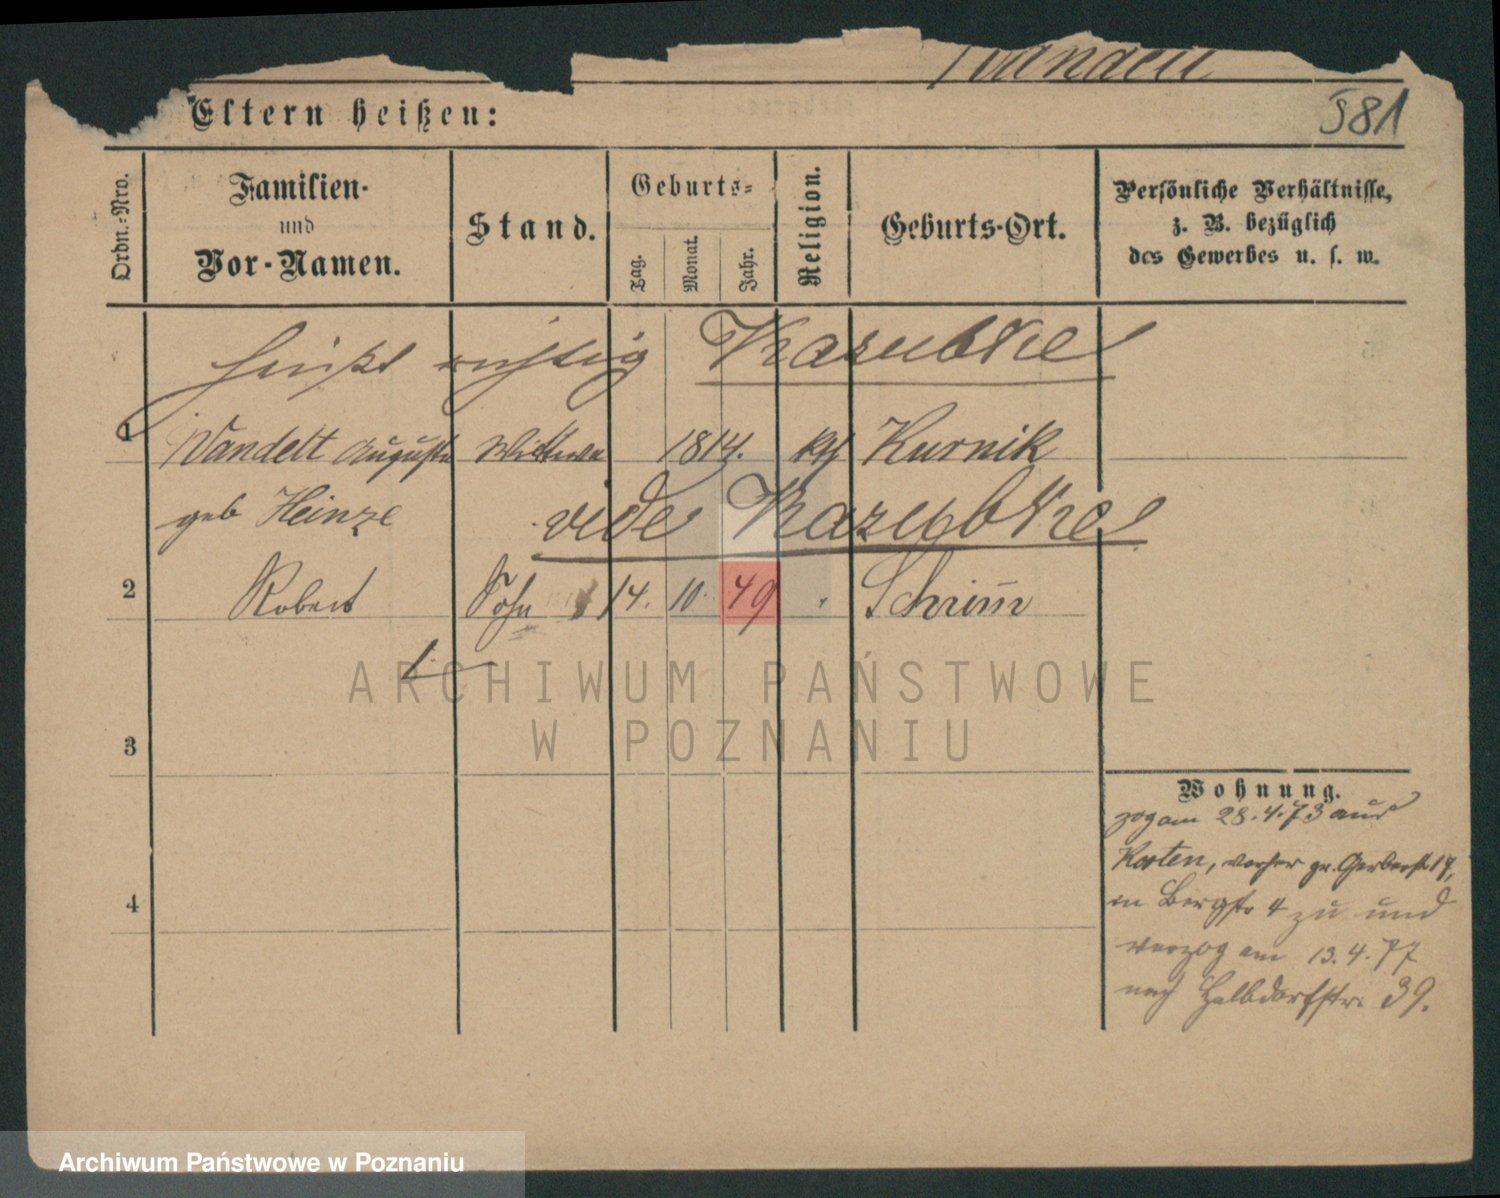 Wandelt
581
Eltern heißen:
Ordn.=Nro.
Familien-
und
Vor-Namen.
Stand.
Geburts=
Tag.
Monat.
Jahr.
Religion.
Geburts-Ort.
Persönliche Verhältnisse,
z. B. bezüglich
des Gewerbes u. s. w.
heißt richtig Kasubke
1 Wandelt Auguste Wittwe 1814. kth Kurnik
geb Heinze vide Kazubke
2 Robert Sohn 14. 10. 49 Schrimm
3
4
Wohnung.
zog am 28.4.73 aus
Kosten, vorher gr. Gerberstr 17,
in Bergstr 4 zu und
verzog am 13.4.77
nach Halbdorfstr. 39.
ARCHIWUM PAŃSTWOWE
W POZNANIU
Archiwum Państwowe w Poznaniu